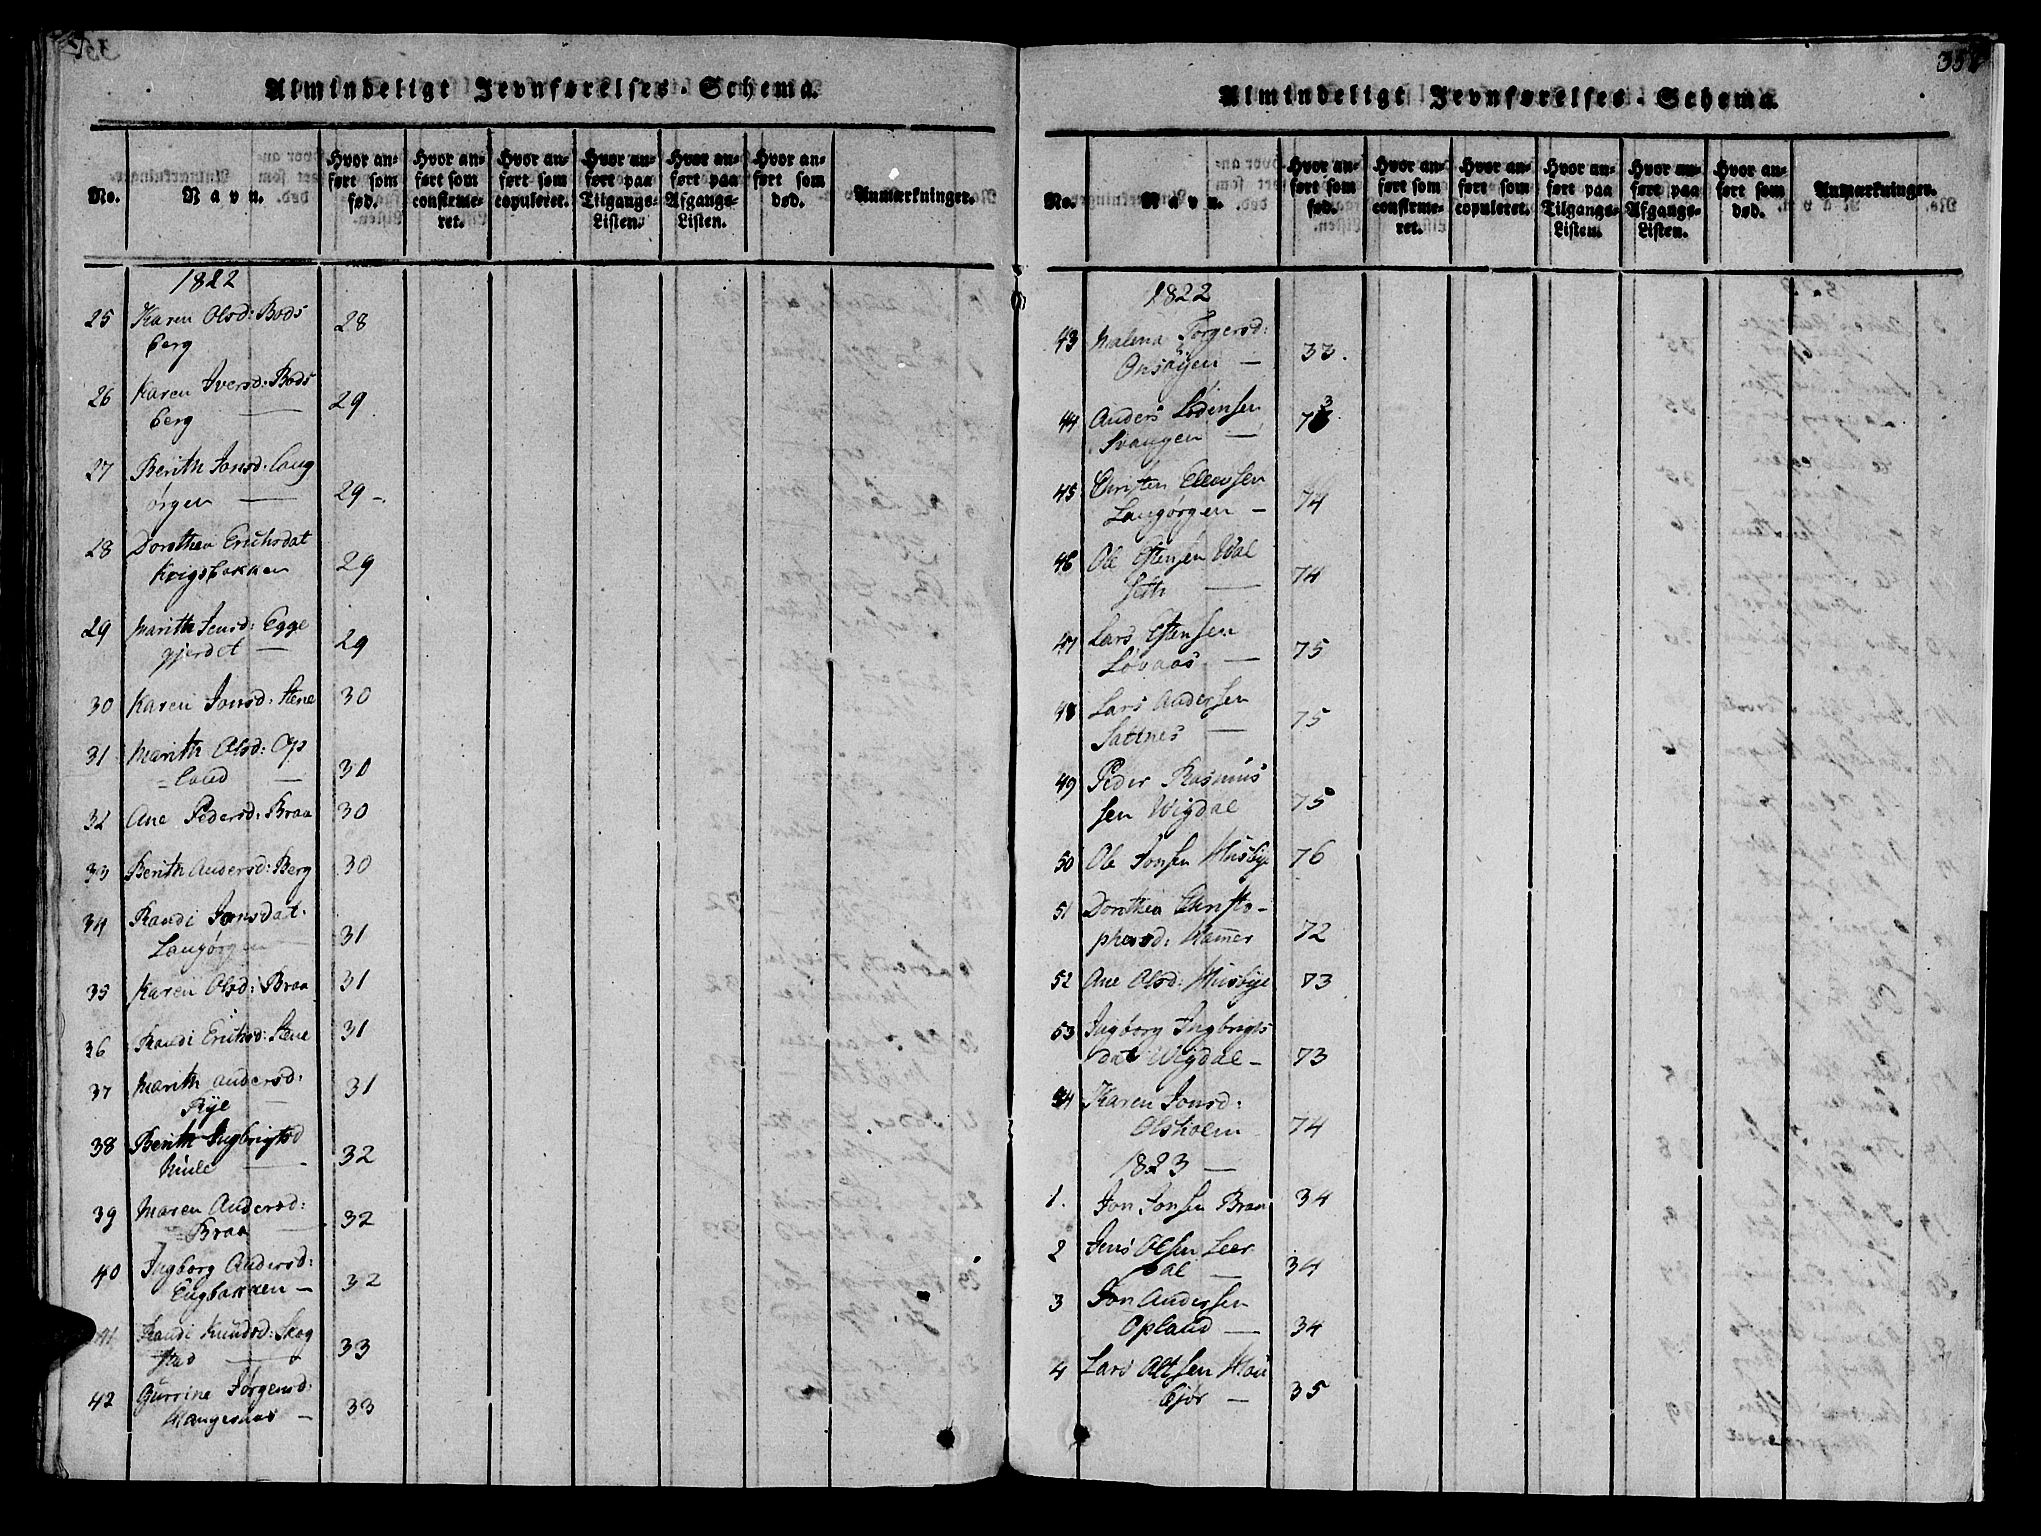 Almindeligt Jevnførelses-Schema.
No.
Navn.
Hvor anført som fød.
Hvor anført som confirmeret.
Hvor anført som copuleret.
Hvor anført paa Tilgangs-Listen.
Hvor anført paa Afgangs-Listen.
Hvor anført som død.
Anmærkninger.
1822
25 Karen Olsd: Bods
berg 28
26 Karen Iversd: Bods
berg — 29.
27 Berith Jonsd: Laug
ørgen — 29 –.
28 Dorothea Erichsdat
Krigsbakken 29
29 Marith Jensd: Egge
gjerdet — 29
30 Karen Jonsd: Stene 30
31 Marith Olsd: Op
=land — 30
32 Ane Pedersd: Braa 30
33 Berith Andersd: Berg 30
34 Randi Jonsdat:
Langørgen 31
35 Karen Olsd: Braa 31
36 Randi Erichsd: Stene 31
37 Marith Andersd:
Rye — 31
38 Berith Ingbrigtsd
Huule — 32
39 Maren Andersd:
=Braa — 32
40 Ingborg Andersd:
Engbakken — 32
41 Randi Knudsd: Skog
stad — 33
42 Gurrine Jørgensd:
Mangesnas — 33
357
Almindeligt Jevnførelses-Schema.
No.
Navn.
Hvor anført som fød.
Hvor anført som confirmeret.
Hvor anført som copuleret.
Hvor anført paa Tilgangs-Listen.
Hvor anført paa Afgangs-Listen.
Hvor anført som død.
Anmærkninger.
1822
43 Malena Torgersd:
Onsøyen — 33.
44 Anders Lodensen
Svangen — 73
45 Christen Ellensen
Langørgen — 74
46 Ole Estensen Wal
seth — 74
47 Lars Estensen
Løvaas — 75
48 Lars Andersen
Sattnes — 75
49 Peder Rasmus
sen Wigdal 75
50 Ole Jonsen Husbye 76
51 Dorthea Christo-
phersd: Hamer 72
52 Ane Olsd: Husbye 73
53 Ingborg Ingbrigts
dat Wigdal — 73
54 Karen Jonsd:
Olsholem 74
1823 —
1. Jon Jonsen Braa 34
2 Jens Olsen Leer
dal — 34
3 Jon Andersen
Opland — 34
4 Lars Oltsen Hau
bjør — 35